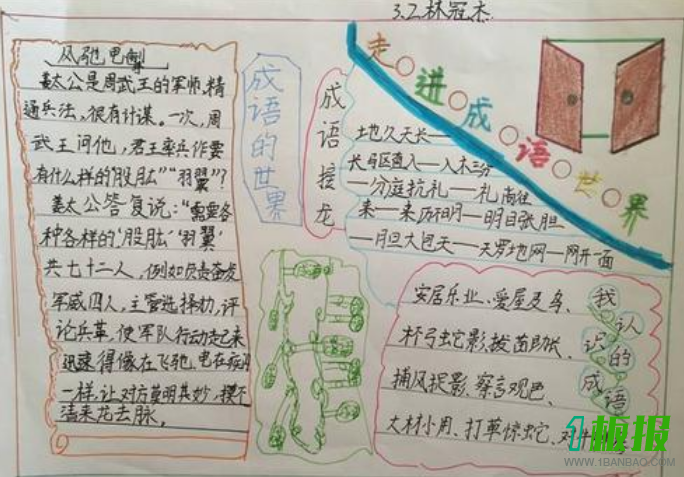 3.2林冠杰
走进成语世界
风驰电掣
姜太公是周武王的军师,精
通兵法,很有计谋。一次,周
武王问他,君王率兵作要
有什么样的"股肱""羽翼"?
姜太公答复说:"需要各
种各样的'股肱''羽翼'
共七十二人,例如负责奋发
军威四人,主管选择,评
论兵革,使军队行动起来
迅速得像在飞驰,电在
一样,让对方莫明其妙,摸不
清来龙去脉。
成语的世界
成语接龙
地久天长——
长驱直入——入木三分
—分庭抗礼——礼尚往
来——来历明——明目张胆
—胆大包天——天罗地网——网开一面
我认识的成语
安居乐业、爱屋及乌、
杯弓蛇影、拔苗助长、
捕风捉影、察言观色、
大材小用、打草惊蛇、对牛
1板报
WWW.1BANBAO.COM